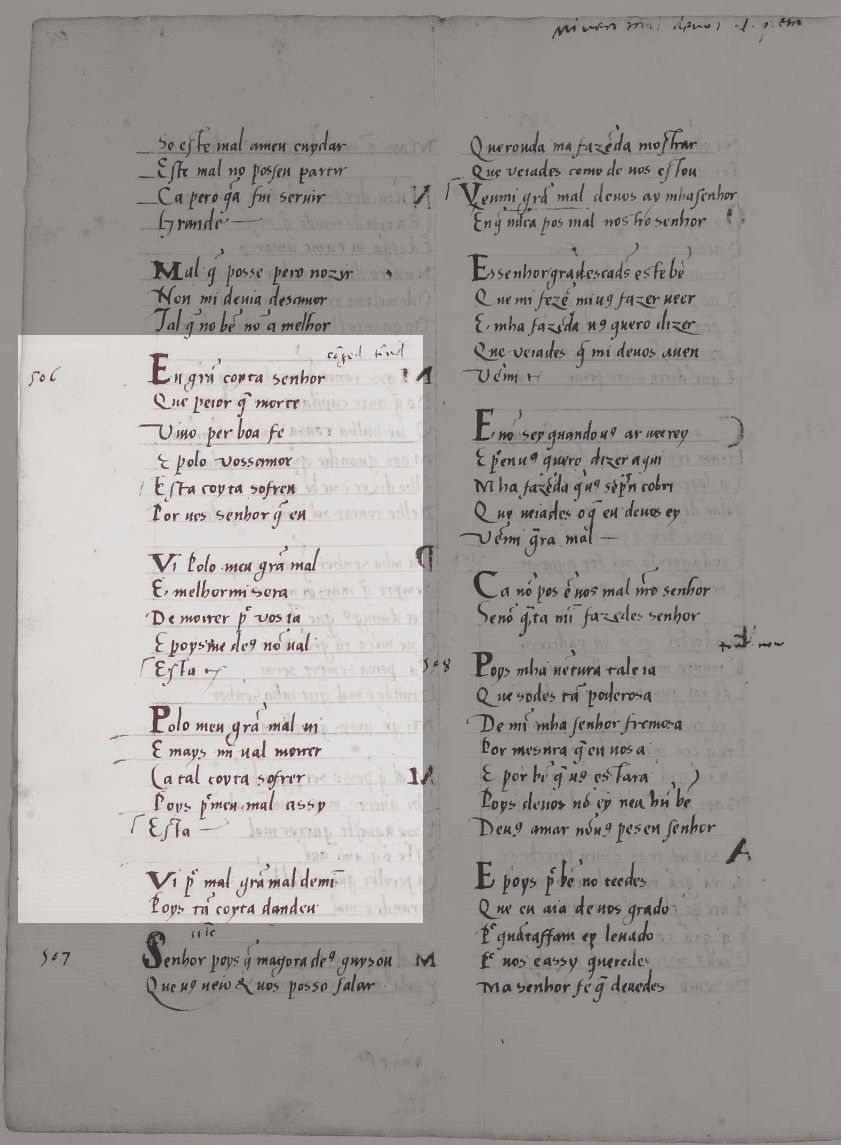 Se este mal ameu cuydar
Este mal nō posseu partir
Ca pero q̄ fui servir
Grande
Mal q̄ posse pero nozir
Non mi devia desamor
Tal q̄ no bē nō a melhor
506
En grā coyta senhor
Que peior q̄ morte
Vivo per boa fe
E polo vossamor
Esta coyta sofreu
Por vos senhor q̄ eu
Vi Polo meu grā mal
E melhormi sera
De moirer pº vos ia
E poys me deꝰ nō val
Esta
Polo meu grā mal vi
E mays mi val moirer
Ca tal coyta sofrer
Poys pºmeu mal assy
Esta
Vi pº mal grā mal demī
Poys tā coyta dandeu
507
Senhor poys q̄ magora deꝰ guysou
Que uꝰ vew & uos posso falar
Querouda ma fazēda mostrar
Que veiades como de uos estou
Venmi grā mal devos ay mhasenhor
En q̄ nūca pos mal nostro senhor
Essenhor gradescadꝰ este bē
Que mi fezē miuꝰ fazer veer
E mha fazēda uꝰ quero dizer
Que veiades q̄ mi devos aven
Vēm
E nō sey quando uꝰ ar veerey
E pºen uꝰ quero dizer aqui
Mha fazēda q̄uꝰ sēpº cobri
Que veiades oq̄ eu devos ey
Vēmi grā mal
Ca nō pos ē uos mal nrō senhor
Senō q̄ta mī fazedes senhor
508
Poys mha vētura tal e ia
Que sodes tā poderosa
De mī mha senhor fremosa
Por mesura q̄ eu vos a
E por bē q̄ uꝰ estara
Poys devos nō ey neu hū bē
Deuꝰ amar nōuꝰ pes en senhor
E poys pº bē no teedes
Que eu aia de vos grado
Pº quātaffam ey levado
Pº vos e assy queredes
Ma senhor fe q̄ devedes